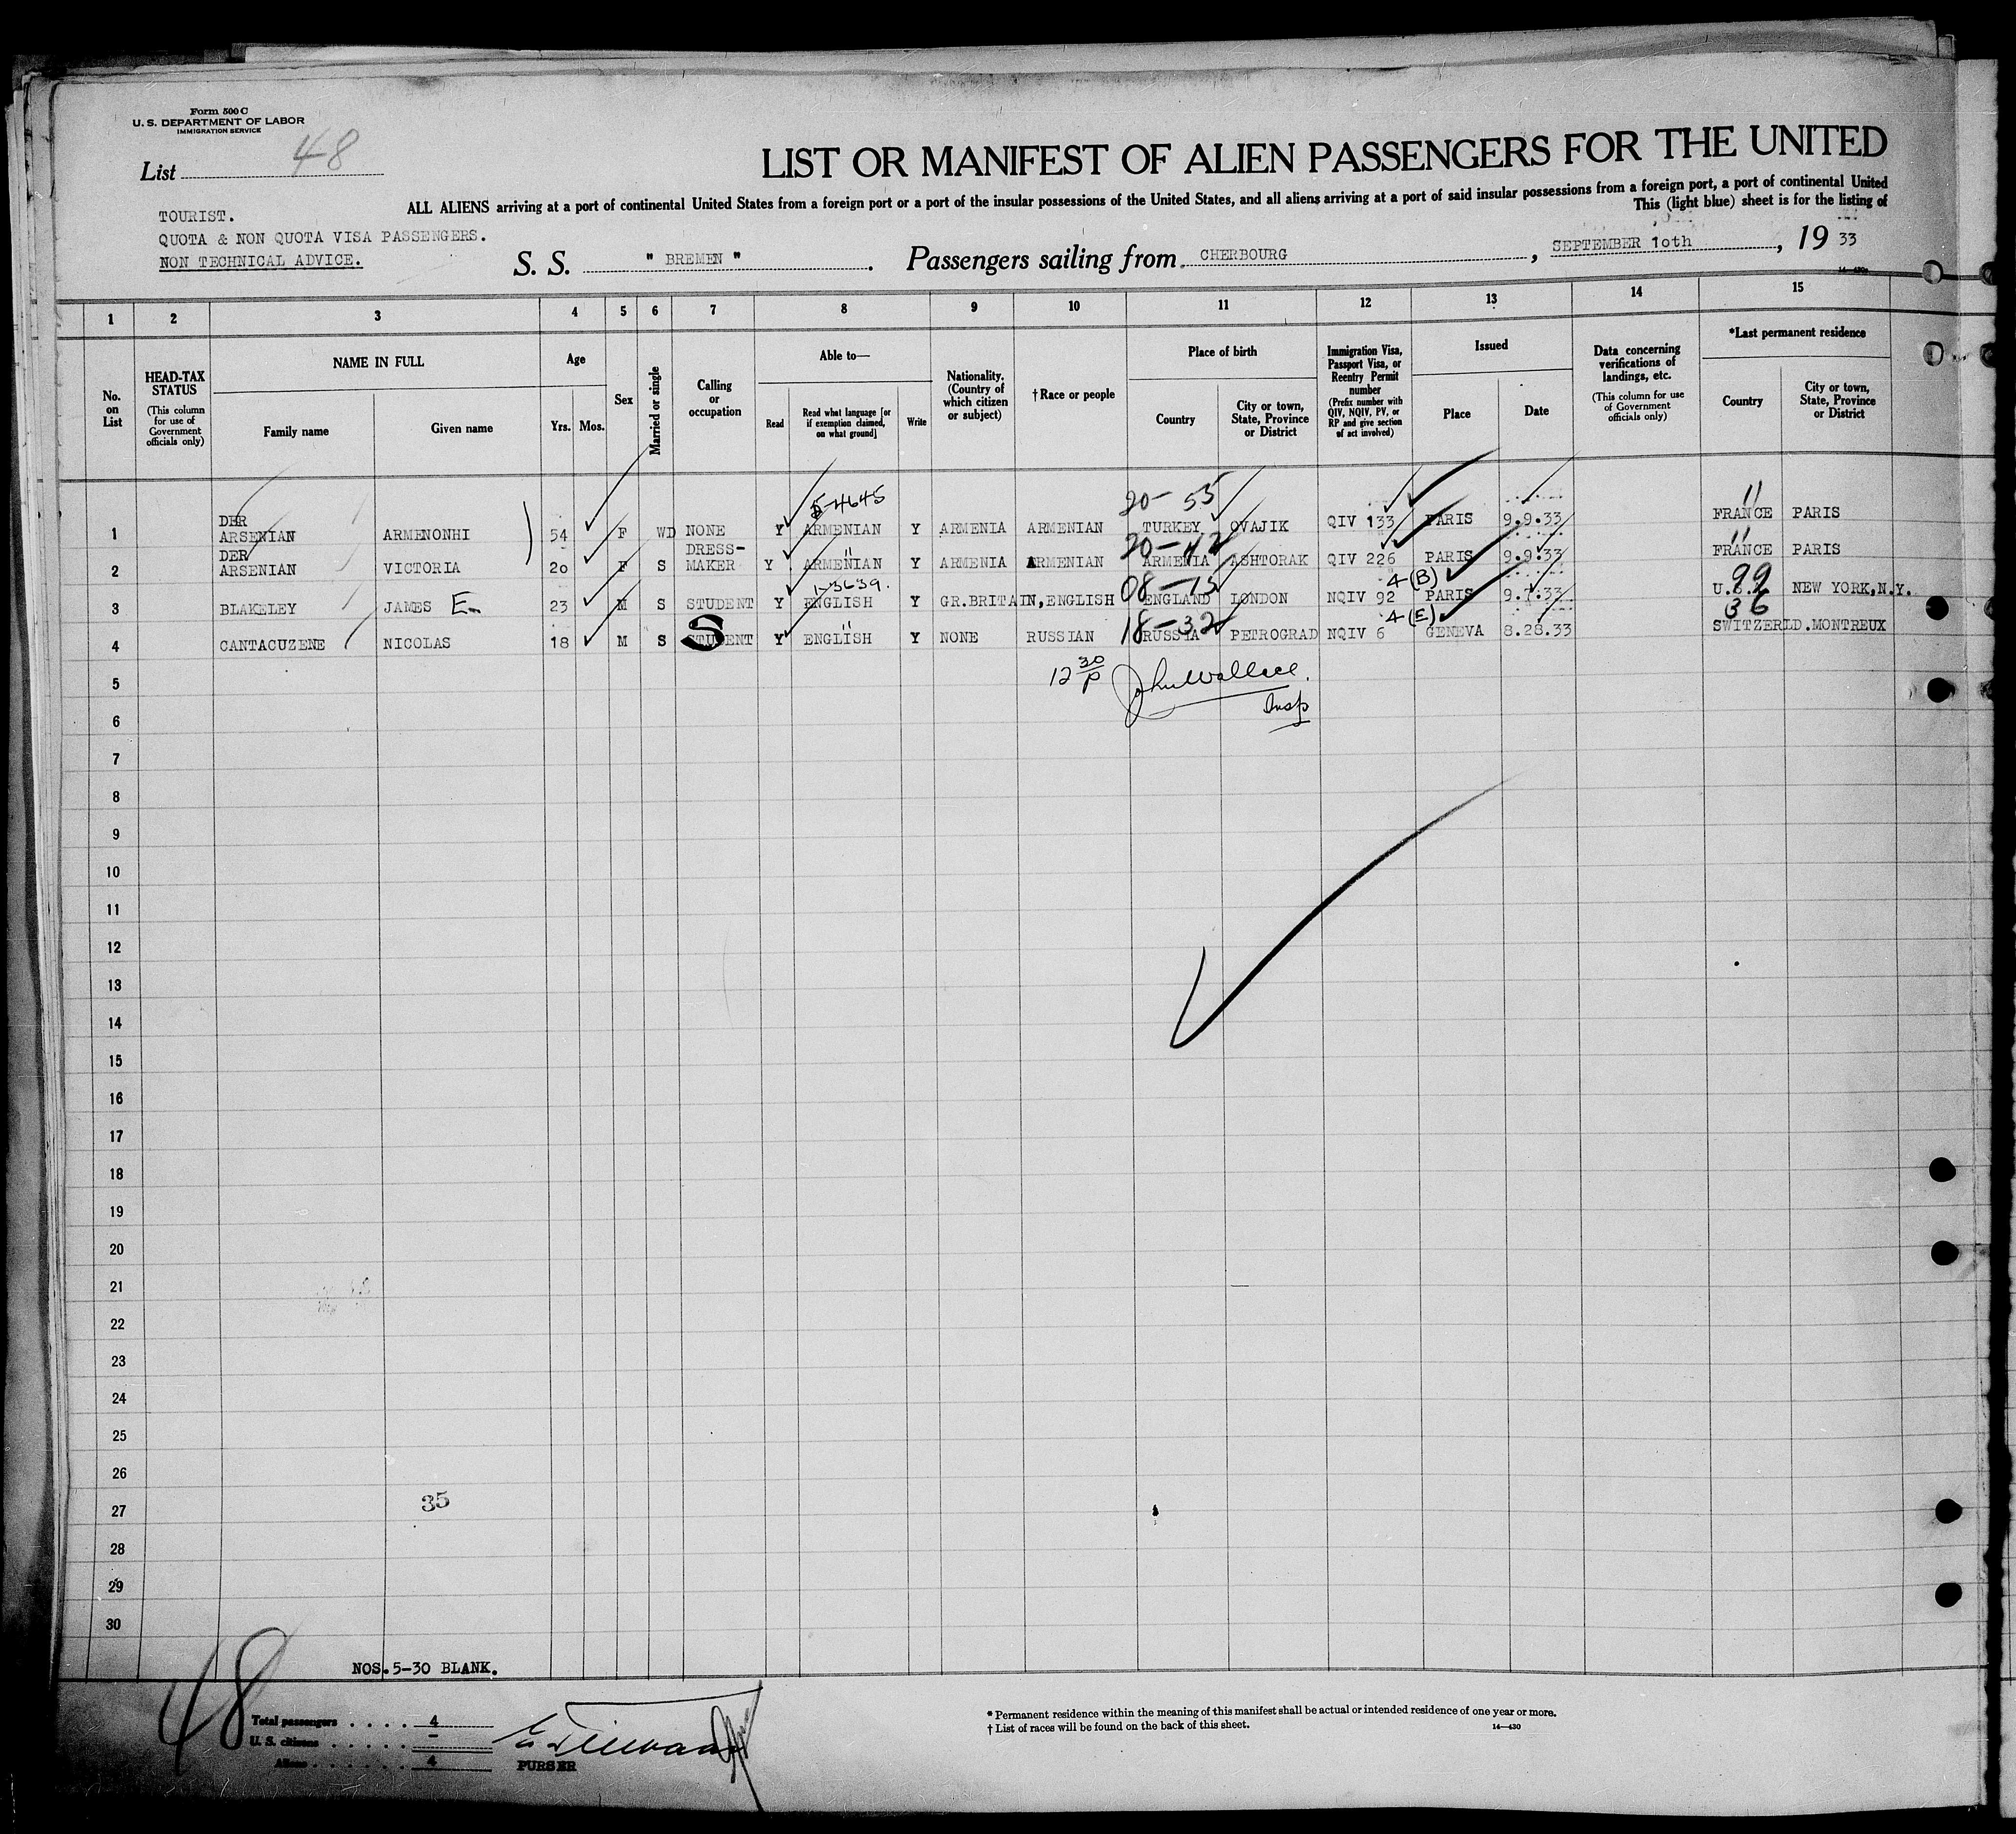 Form 500 C
U. S. DEPARTMENT OF LABOR
IMMIGRATION SERVICE
List 48
LIST OR MANIFEST OF ALIEN PASSENGERS FOR THE UNITED
ALL ALIENS arriving at a port of continental United States from a foreign port or a port of the insular possessions of the United States, and all aliens arriving at a port of said insular possessions from a foreign port, a port of continental United
This (light blue) sheet is for the listing of
TOURIST.
QUOTA & NON QUOTA VISA PASSENGERS.
NON TECHNICAL ADVICE.
S. S. " BREMEN ". Passengers sailing from CHERBOURG, SEPTEMBER 1oth, 19 33
14—430
1 2 3 4 5 6 7 8 9 10 11 12 13 14 15
No. on List
HEAD-TAX STATUS (This column for use of Government officials only)
NAME IN FULL
Family name
Given name
Age
Yrs. Mos.
Sex
Married or single
Calling or occupation
Able to—
Read
Read what language [or if exemption claimed, on what ground]
Write
Nationality. (Country of which citizen or subject)
†Race or people
Place of birth
Country
City or town, State, Province or District
Immigration Visa, Passport Visa, or Reentry Permit number (Prefix number with QIV, NQIV, PV, or RP and give section of act involved)
Issued
Place
Date
Data concerning verifications of landings, etc. (This column for use of Government officials only)
*Last permanent residence
Country
City or town, State, Province or District
5-4645 20- 55 11
1 DER ARSENIAN ARMENONHI 54 F WD NONE Y ARMENIAN Y ARMENIA ARMENIAN TURKEY OVAJIK QIV 133 PARIS 9.9.33 FRANCE PARIS
" 20-42 11
2 DER ARSENIAN VICTORIA 2o F S DRESS-MAKER Y ARMENIAN Y ARMENIA ARMENIAN ARMENIA ASHTORAK QIV 226 PARIS 9.9.33 FRANCE PARIS
1-3639. 08-15 4(B) 99
3 BLAKELEY JAMES E. 23 M S STUDENT Y ENGLISH Y GR.BRITAIN, ENGLISH ENGLAND LONDON NQIV 92 PARIS 9.7.33 U.S. NEW YORK,N.Y.
" 18-32 4(E) 36
4 CANTACUZENE NICOLAS 18 M S STUDENT Y ENGLISH Y NONE RUSSIAN RUSSIA PETROGRAD NQIV 6 GENEVA 8.28.33 SWITZERLD. MONTREUX
S
5 12 30/P John Wallace.
6 Insp
7
8
9
10
11
12
13
14
15
16
17
18
19
20
21
22
23
24
25
26
27 35
28
29
30
NOS.5-30 BLANK.
48
Total passengers . . . . 4
U. S. citizens . . . . . –
Aliens . . . . . . 4
PURSER
* Permanent residence within the meaning of this manifest shall be actual or intended residence of one year or more.
† List of races will be found on the back of this sheet.
14—430